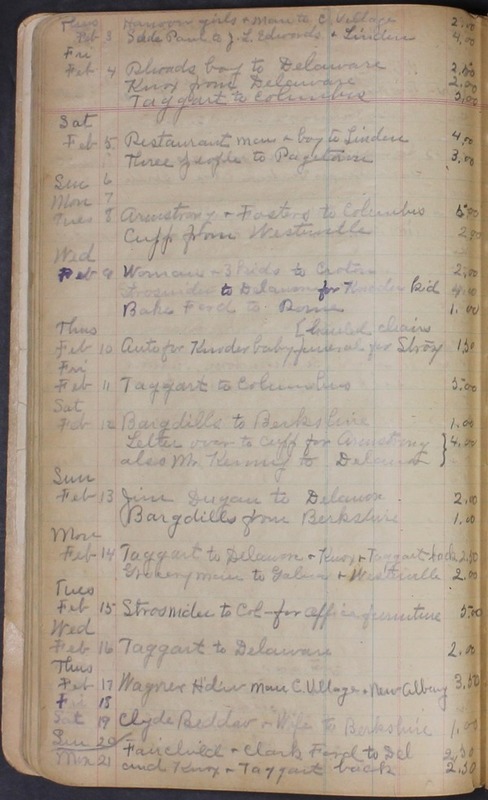 Thus Hanover girls + man to C. Village 2.00
Feb 3 Sade Paul & J. L. Edwards + Linden 4.00
Fri
Feb 4 Rhoads boy to Delaware 2.50
Knox from Delaware 2.00
Taggart to Columbus 5.00
Sat
Feb 5 Restaurant man + boy to Linden 4.00
Three people to Pagetown 3.00
Sun 6
Mon 7
Tues 8 Armstrong + Fosters to Columbus 5.00
Cuff from Westerville 2.00
Wed
Feb 9 Woman + 3 kids to Croton 2.00
Strosnider to Delawon for Kinder kid 4.00
Bake Ford to Rome 1.00
[hauled chairs
Thus
Feb 10 Auto for Kinder baby funeral for Stroz 1.50
Fri
Feb 11 Taggart to Columbus 5.00
Sat
Feb 12 Bargdills to Berkshire 1.00
Letter over to Cuff for Armstrong } 4.00
also Mr. to Delawon
Sun
Feb 13 Jim Dugan to Delawon 2.00
Bargdills from Berkshire 1.00
Mon
Feb 14 Taggart to Delawon + Knox + Taggart back 2.50
Grocery man to Galena + Westerville 2.00
Tues
Feb 15 Strosnider to Col - for office furniture 5.00
Wed
Feb 16 Taggart to Delaware 2.00
Thus
Feb 17 Wagner Hdw man C. Village + New Albany 3.50
Fri 18
Sat 19 Clyde Beddow + Wife to Berkshire 1.00
Sun 20 Fairchild + Clark Ford to Del 2.50
Mon 21 and Knox + Taggart back 2.50